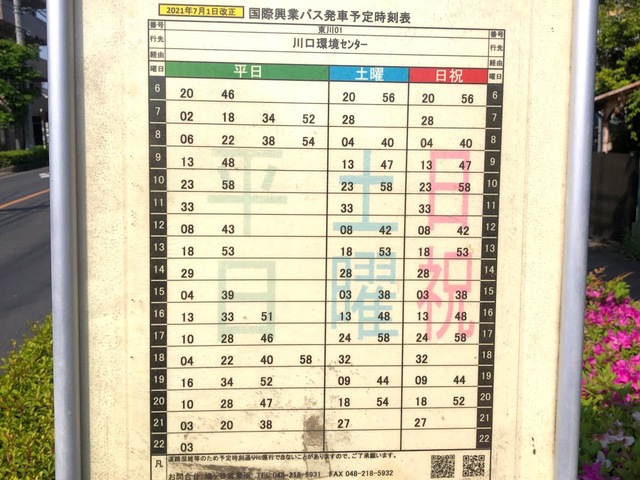 2021年7月1日改正 国際興業バス発車予定時刻表
番号 東川01 番号
行先 川口環境センター 行先
経由 経由
曜日 平日 土曜 日祝 曜日
6 20 46 20 56 20 56 6
7 02 18 34 52 28 28 7
8 06 22 38 54 04 40 04 40 8
9 13 48 13 47 13 47 9
10 23 58 23 58 23 58 10
11 33 33 33 11
12 08 43 08 42 08 42 12
13 18 53 18 53 18 53 13
14 29 28 28 14
15 04 39 03 38 03 38 15
16 13 33 51 13 48 13 48 16
17 10 28 46 24 58 24 58 17
18 04 22 40 58 32 32 18
19 16 34 52 09 44 09 44 19
20 10 28 47 18 54 18 52 20
21 03 20 38 27 27 21
22 03 22
平日 土曜 日祝
凡 道路混雑等のため予定時刻通りに運行できないことがありますので、ご了承願います。
お問合せ 営業所 TEL 048-218-5931 FAX 048-218-5932